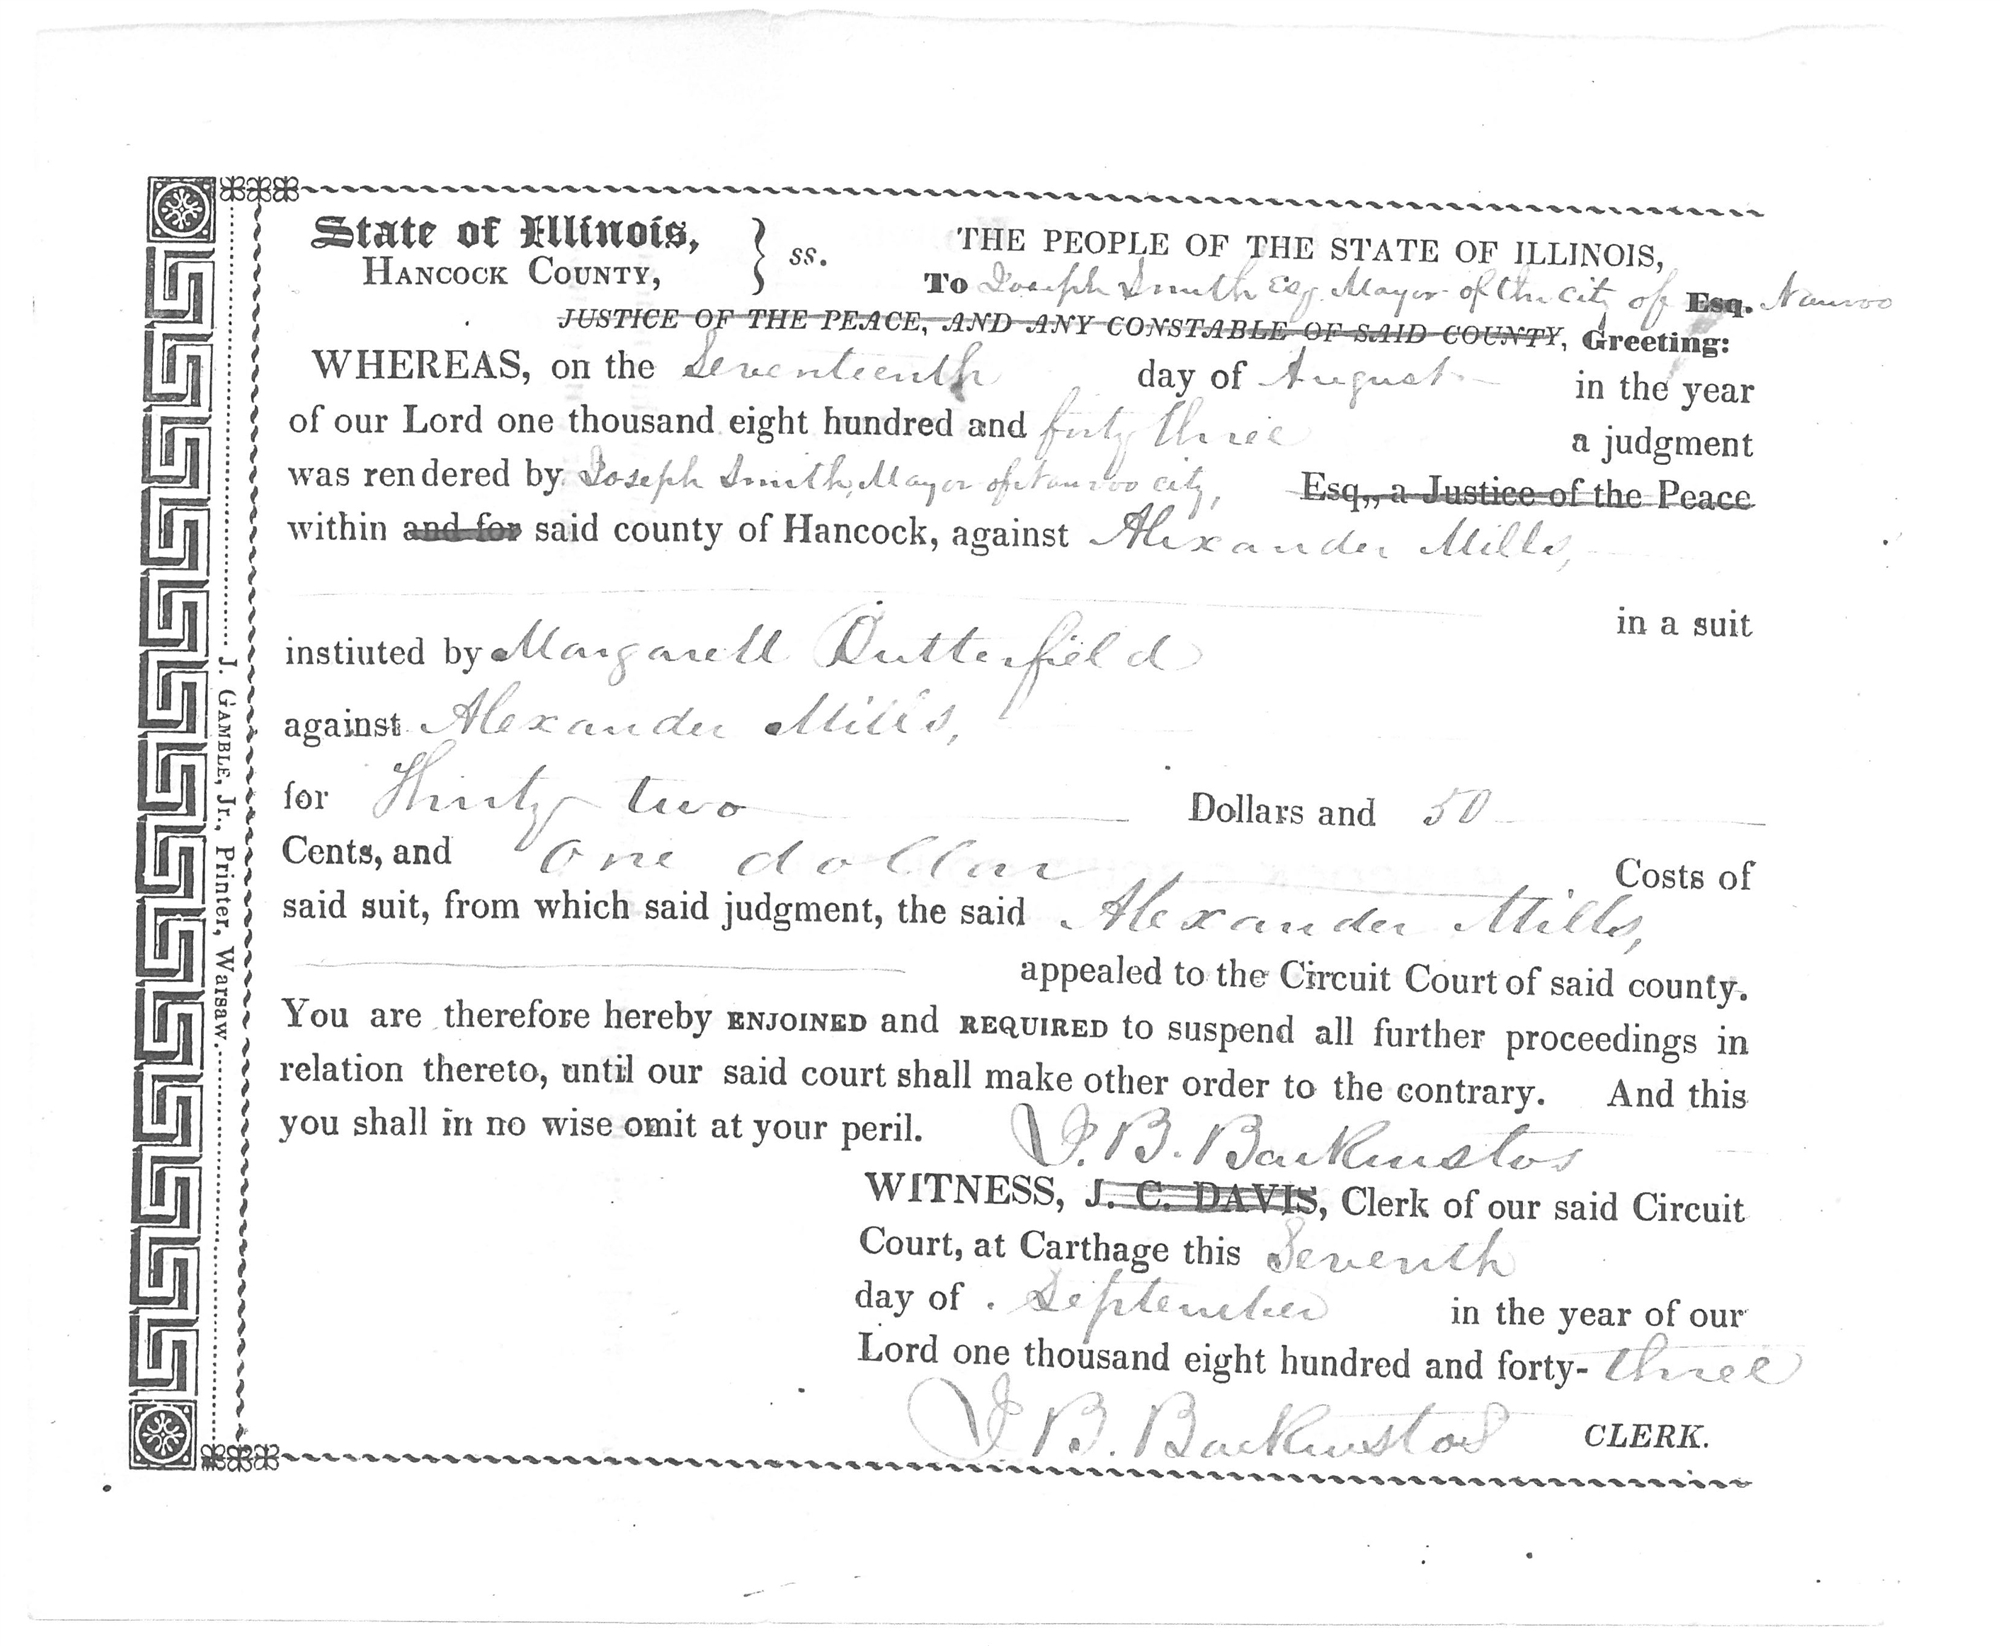 State of Illinois, } ss. THE PEOPLE OF THE STATE OF ILLINOIS,
HANCOCK COUNTY,
To Joseph Smith Esq. Mayor of the City of Esq. Nauvoo
JUSTICE OF THE PEACE, AND ANY CONSTABLE OF SAID COUNTY, Greeting:
WHEREAS, on the Seventeenth day of August in the year
of our Lord one thousand eight hundred and forty three a judgment
was rendered by Joseph Smith, Mayor of Nauvoo City, Esq,, a Justice of the Peace
within and for said county of Hancock, against Alexander Mills,
in a suit
instiuted by Margarett Butterfield
against Alexander Mills,
for Thirty two Dollars and 50
Cents, and One dollar Costs of
said suit, from which said judgment, the said Alexander Mills,
appealed to the Circuit Court of said county.
You are therefore hereby ENJOINED and REQUIRED to suspend all further proceedings in
relation thereto, until our said court shall make other order to the contrary. And this
you shall in no wise omit at your peril.
J. B. Backenstos
WITNESS, J. C. DAVIS, Clerk of our said Circuit
Court, at Carthage this Seventh
day of September in the year of our
Lord one thousand eight hundred and forty- three
J. B. Backenstos CLERK.
J. GAMBLE, Jr., Printer, Warsaw.